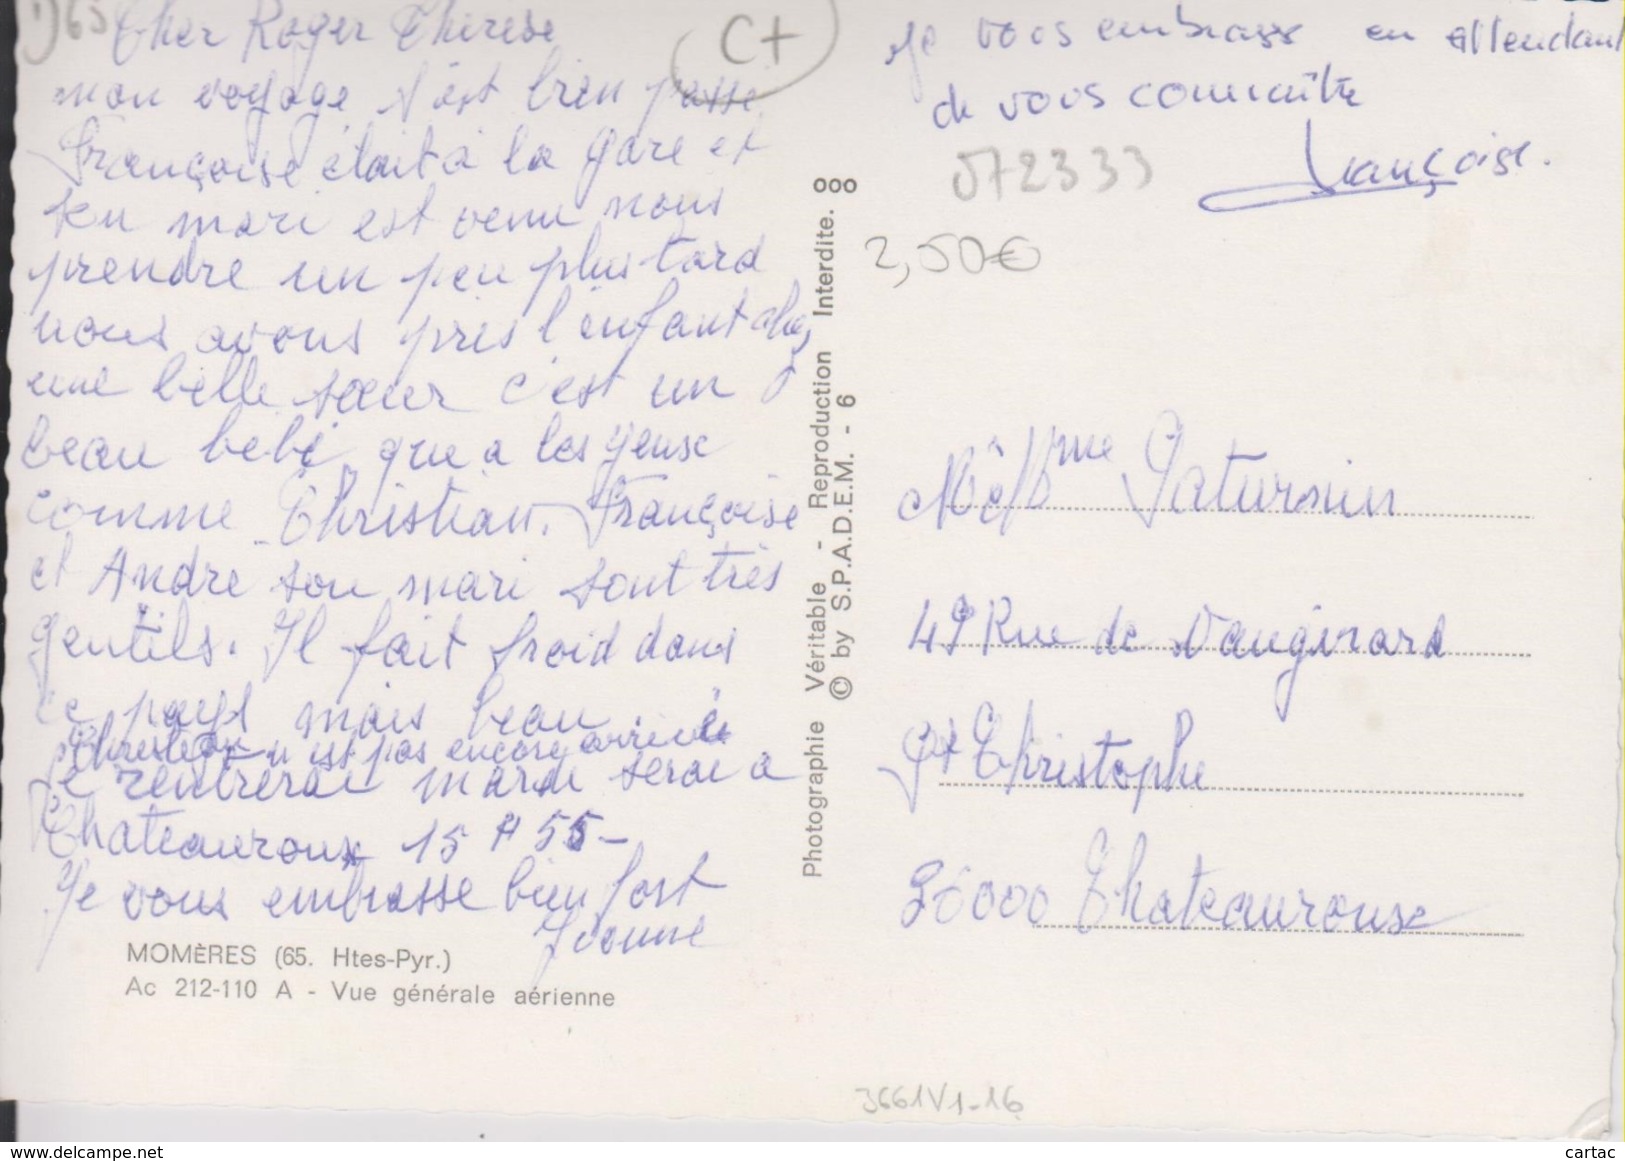 1) 65
Cher Roger Therese
C+
mon voyage s'est bien passe
Françoise etait a la gare et
son mari est venu nous
prendre un peu plus tard
nous avons pris l'enfant chez
une belle sœur c'est un
beau bebe que a les yeux
comme Christian. Françoise
et Andre son mari sont très
gentils. Il fait froid dans
ce pays mais beau
Christian n'est pas encore arrivé
Je rentrerai mardi serai a
Chateauroux 15 H 55 -
Je vous embrasse bien fort
Yvonne
MOMÈRES (65. Htes-Pyr.)
Ac 212-110 A - Vue générale aérienne
Photographie Véritable - Reproduction Interdite. ooo
© by S.P.A.D.E.M. - 6
Je vous embrasse en attendant
de vous connaître
Françoise.
072333
2,50€
M et Mme Saturnin
49 Rue de Vaugirard
St Christophe
36000 Chateauroux
3661V1-16
www.delcampe.net
cartac